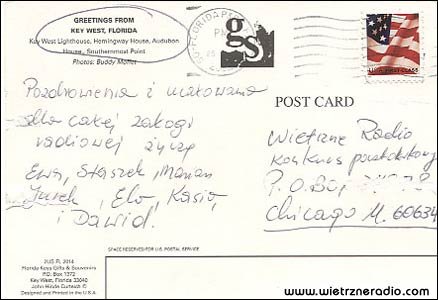 GREETINGS FROM
KEY WEST, FLORIDA
Key West Lighthouse, Hemingway House, Audubon
House, Southernmost Point
Photos: Buddy Moffet
FLORIDA
PM
gs
USA FIRST-CLASS
POST CARD
Pozdrowienia i ucałowania
dla całej załogi
radiowej życzą
Ewa, Staszek, Marian
Jurek, Ela, Kasia,
i Dawid.
Wietrzne Radio
Konkurs pocztówkowy
P.O. Box
Chicago Il. 60634
SPACE RESERVED FOR U.S. POSTAL SERVICE
2US FL 2014
Florida Keys Gifts & Souvenirs
P.O. Box 1372
Key West, Florida 33040
John Hinde Curteich ©
Designed and Printed in the U.S.A.
www.wietrzneradio.com